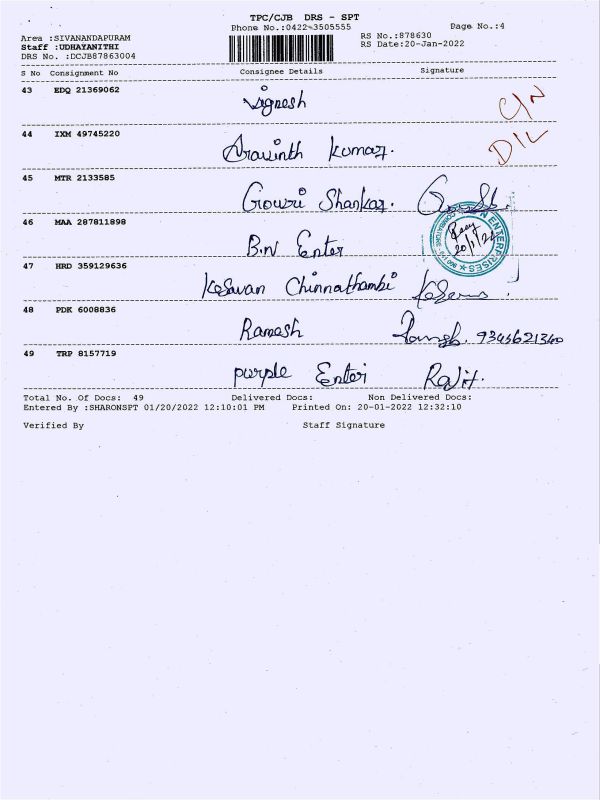 TPC/CJB DRS - SPT
Phone No.:0422-3505555
Page No.:4
Area :SIVANANDAPURAM
RS No.:878630
Staff :UDHAYANITHI
RS Date:20-Jan-2022
DRS No. :DCJB87863004
S No Consignment No Consignee Details Signature
43 EDQ 21369062 Vignesh C/N
44 IXM 49745220 Aravinth Kumar. D/L
45 MTR 2133585 Gowri Shankar.
46 MAA 287811898 B.N Enter
N ENTERPRISES
COIMBATORE
20/1/22
47 HRD 359129636 Kesavan Chinnathambi
48 PDK 6008836 Ramesh 9345621340
49 TRP 8157719 purple Enteri Rajit.
Total No. Of Docs: 49 Delivered Docs: Non Delivered Docs:
Entered By :SHARONSPT 01/20/2022 12:10:01 PM Printed On: 20-01-2022 12:32:10
Verified By Staff Signature